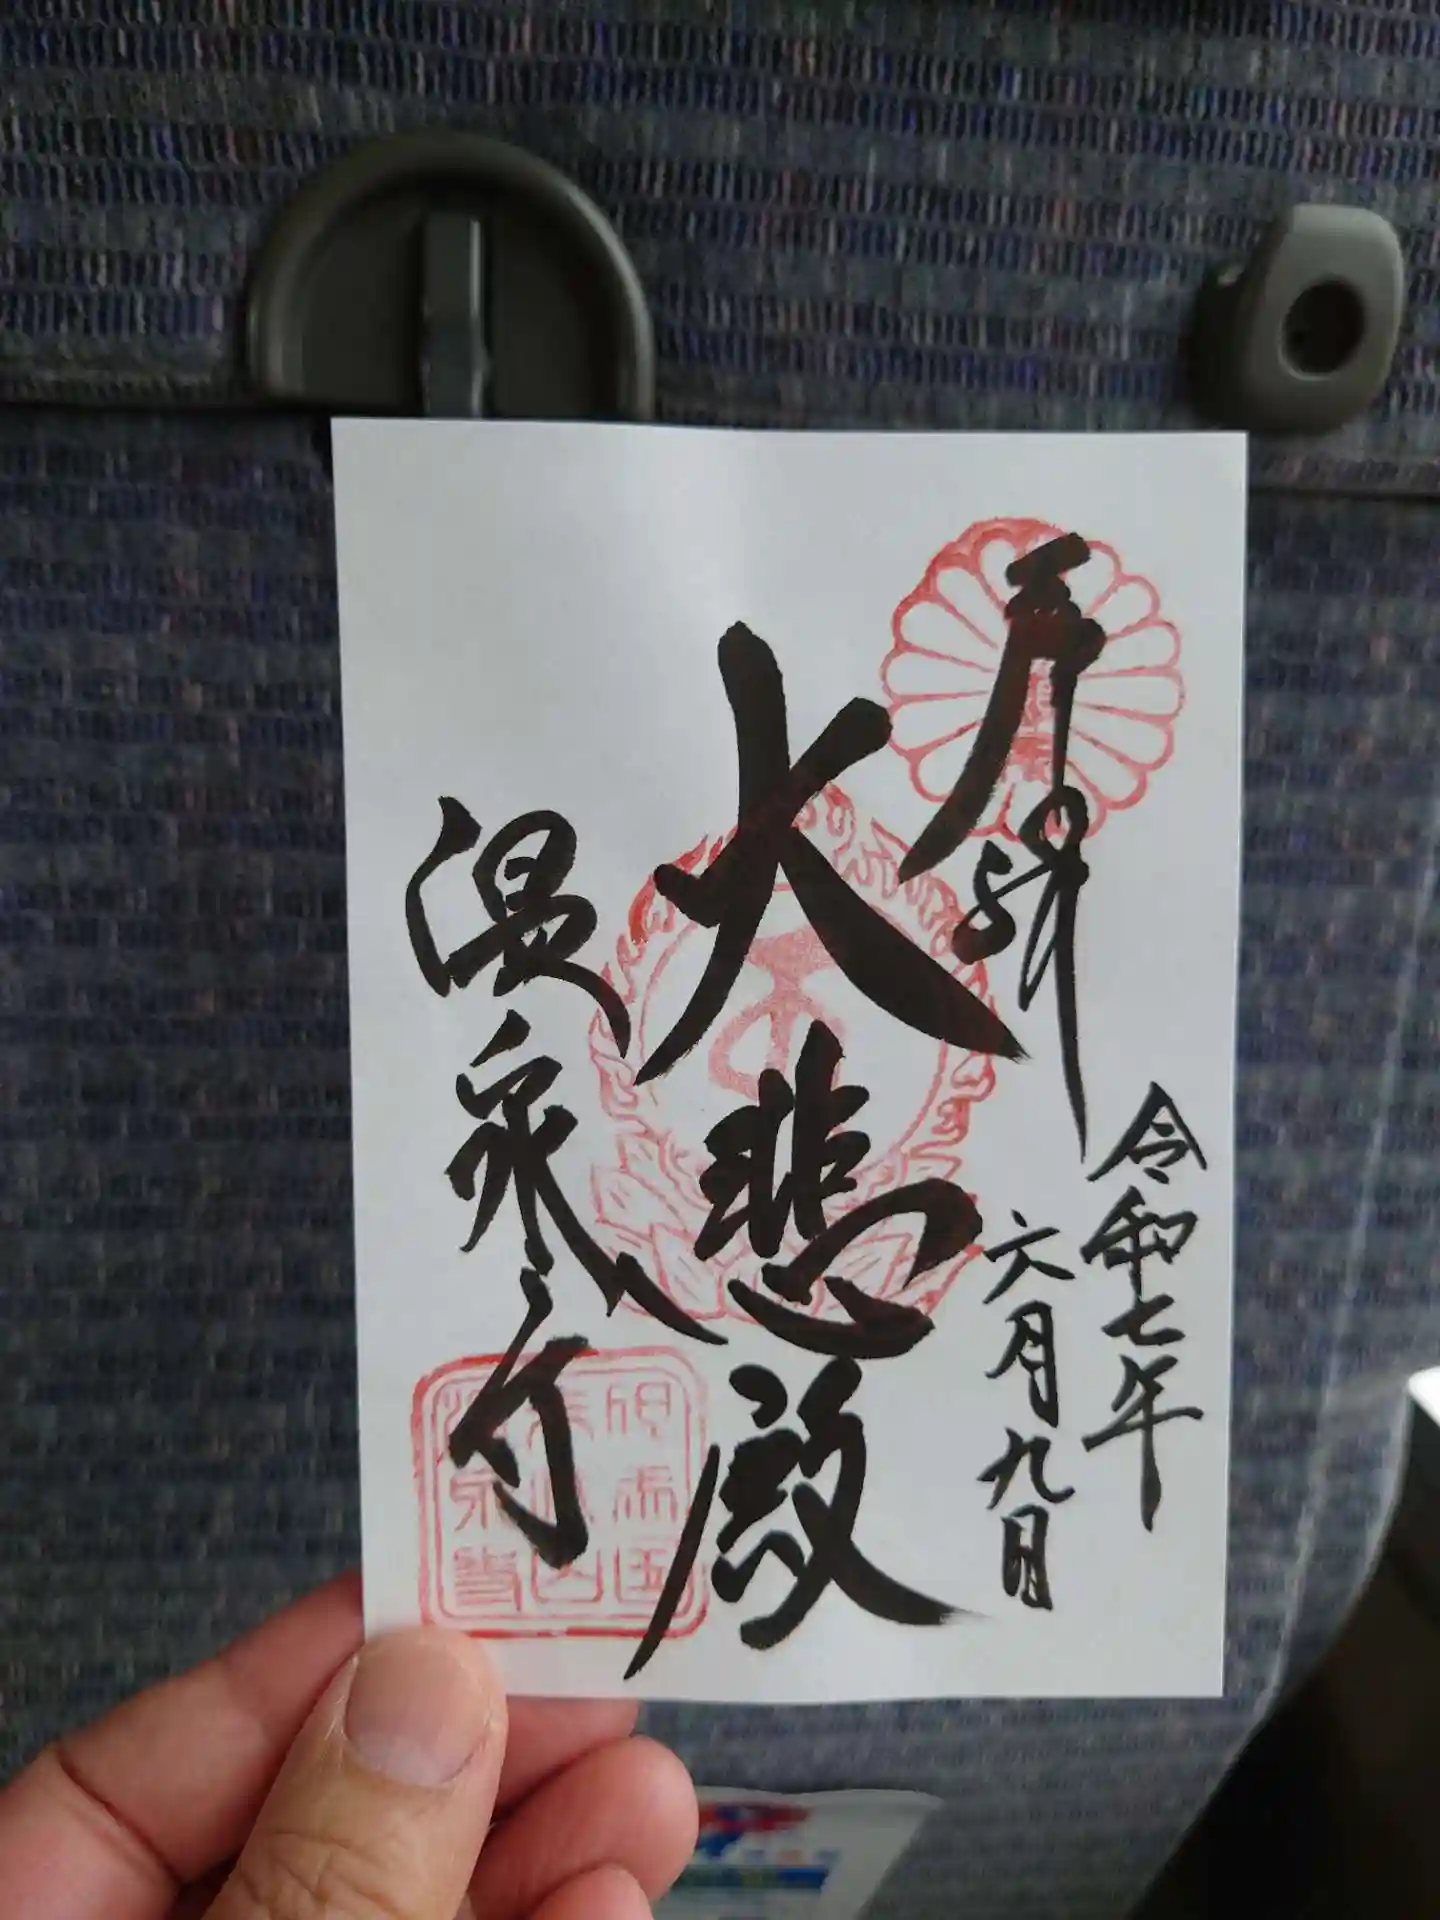 奉拝
令和七年
六月九日
大悲殿
温泉寺
但馬国
末代山
温泉寺